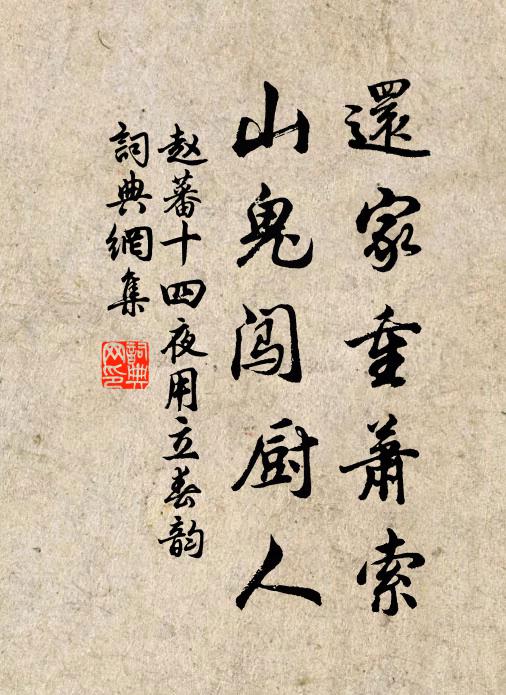 還家重蕭索
山鬼闯厨人
赵蕃十四夜用立春韵
詞典網集
詞典网印